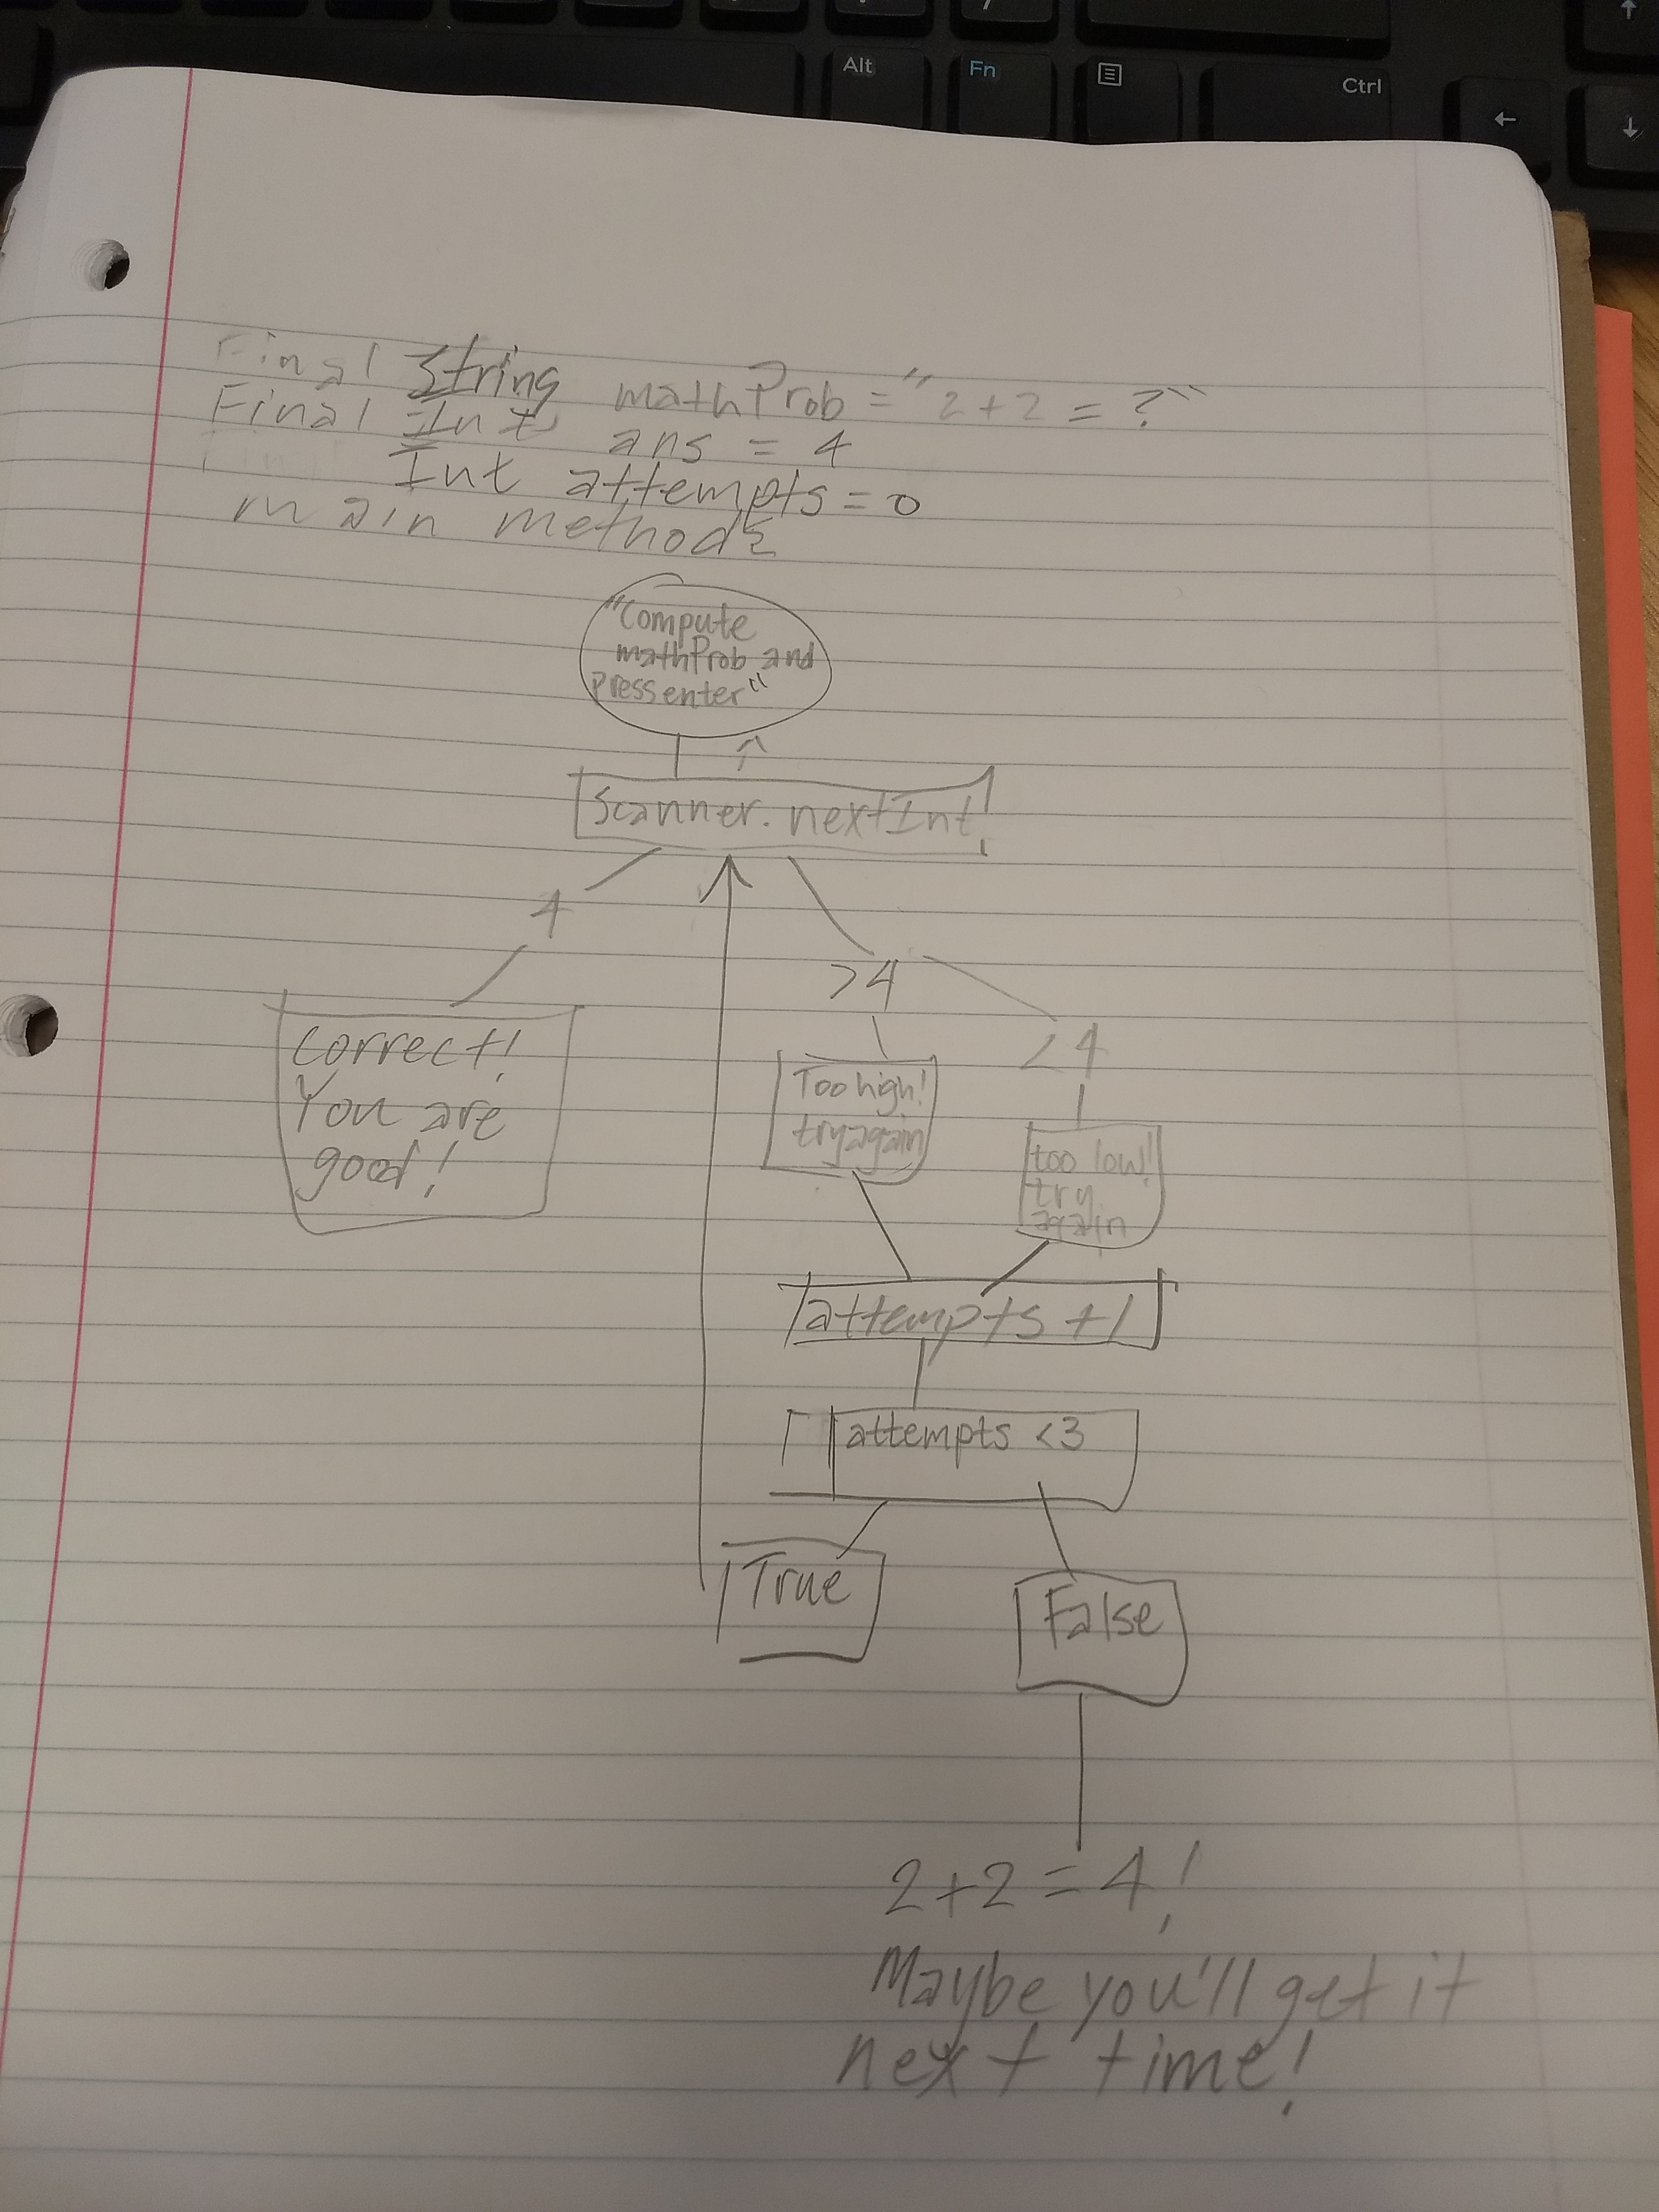 Alt
Fn
Ctrl
Final String mathProb = "2+2 = ?"
Final Int ans = 4
Int attempts = 0
main method {
"Compute
mathProb and
press enter"
Scanner.nextInt
4
>4
<4
Correct!
You are
good!
Too high!
try again
too low!
try
again
attempts +1
attempts <3
True
False
2+2=4!
Maybe you'll get it
next time!